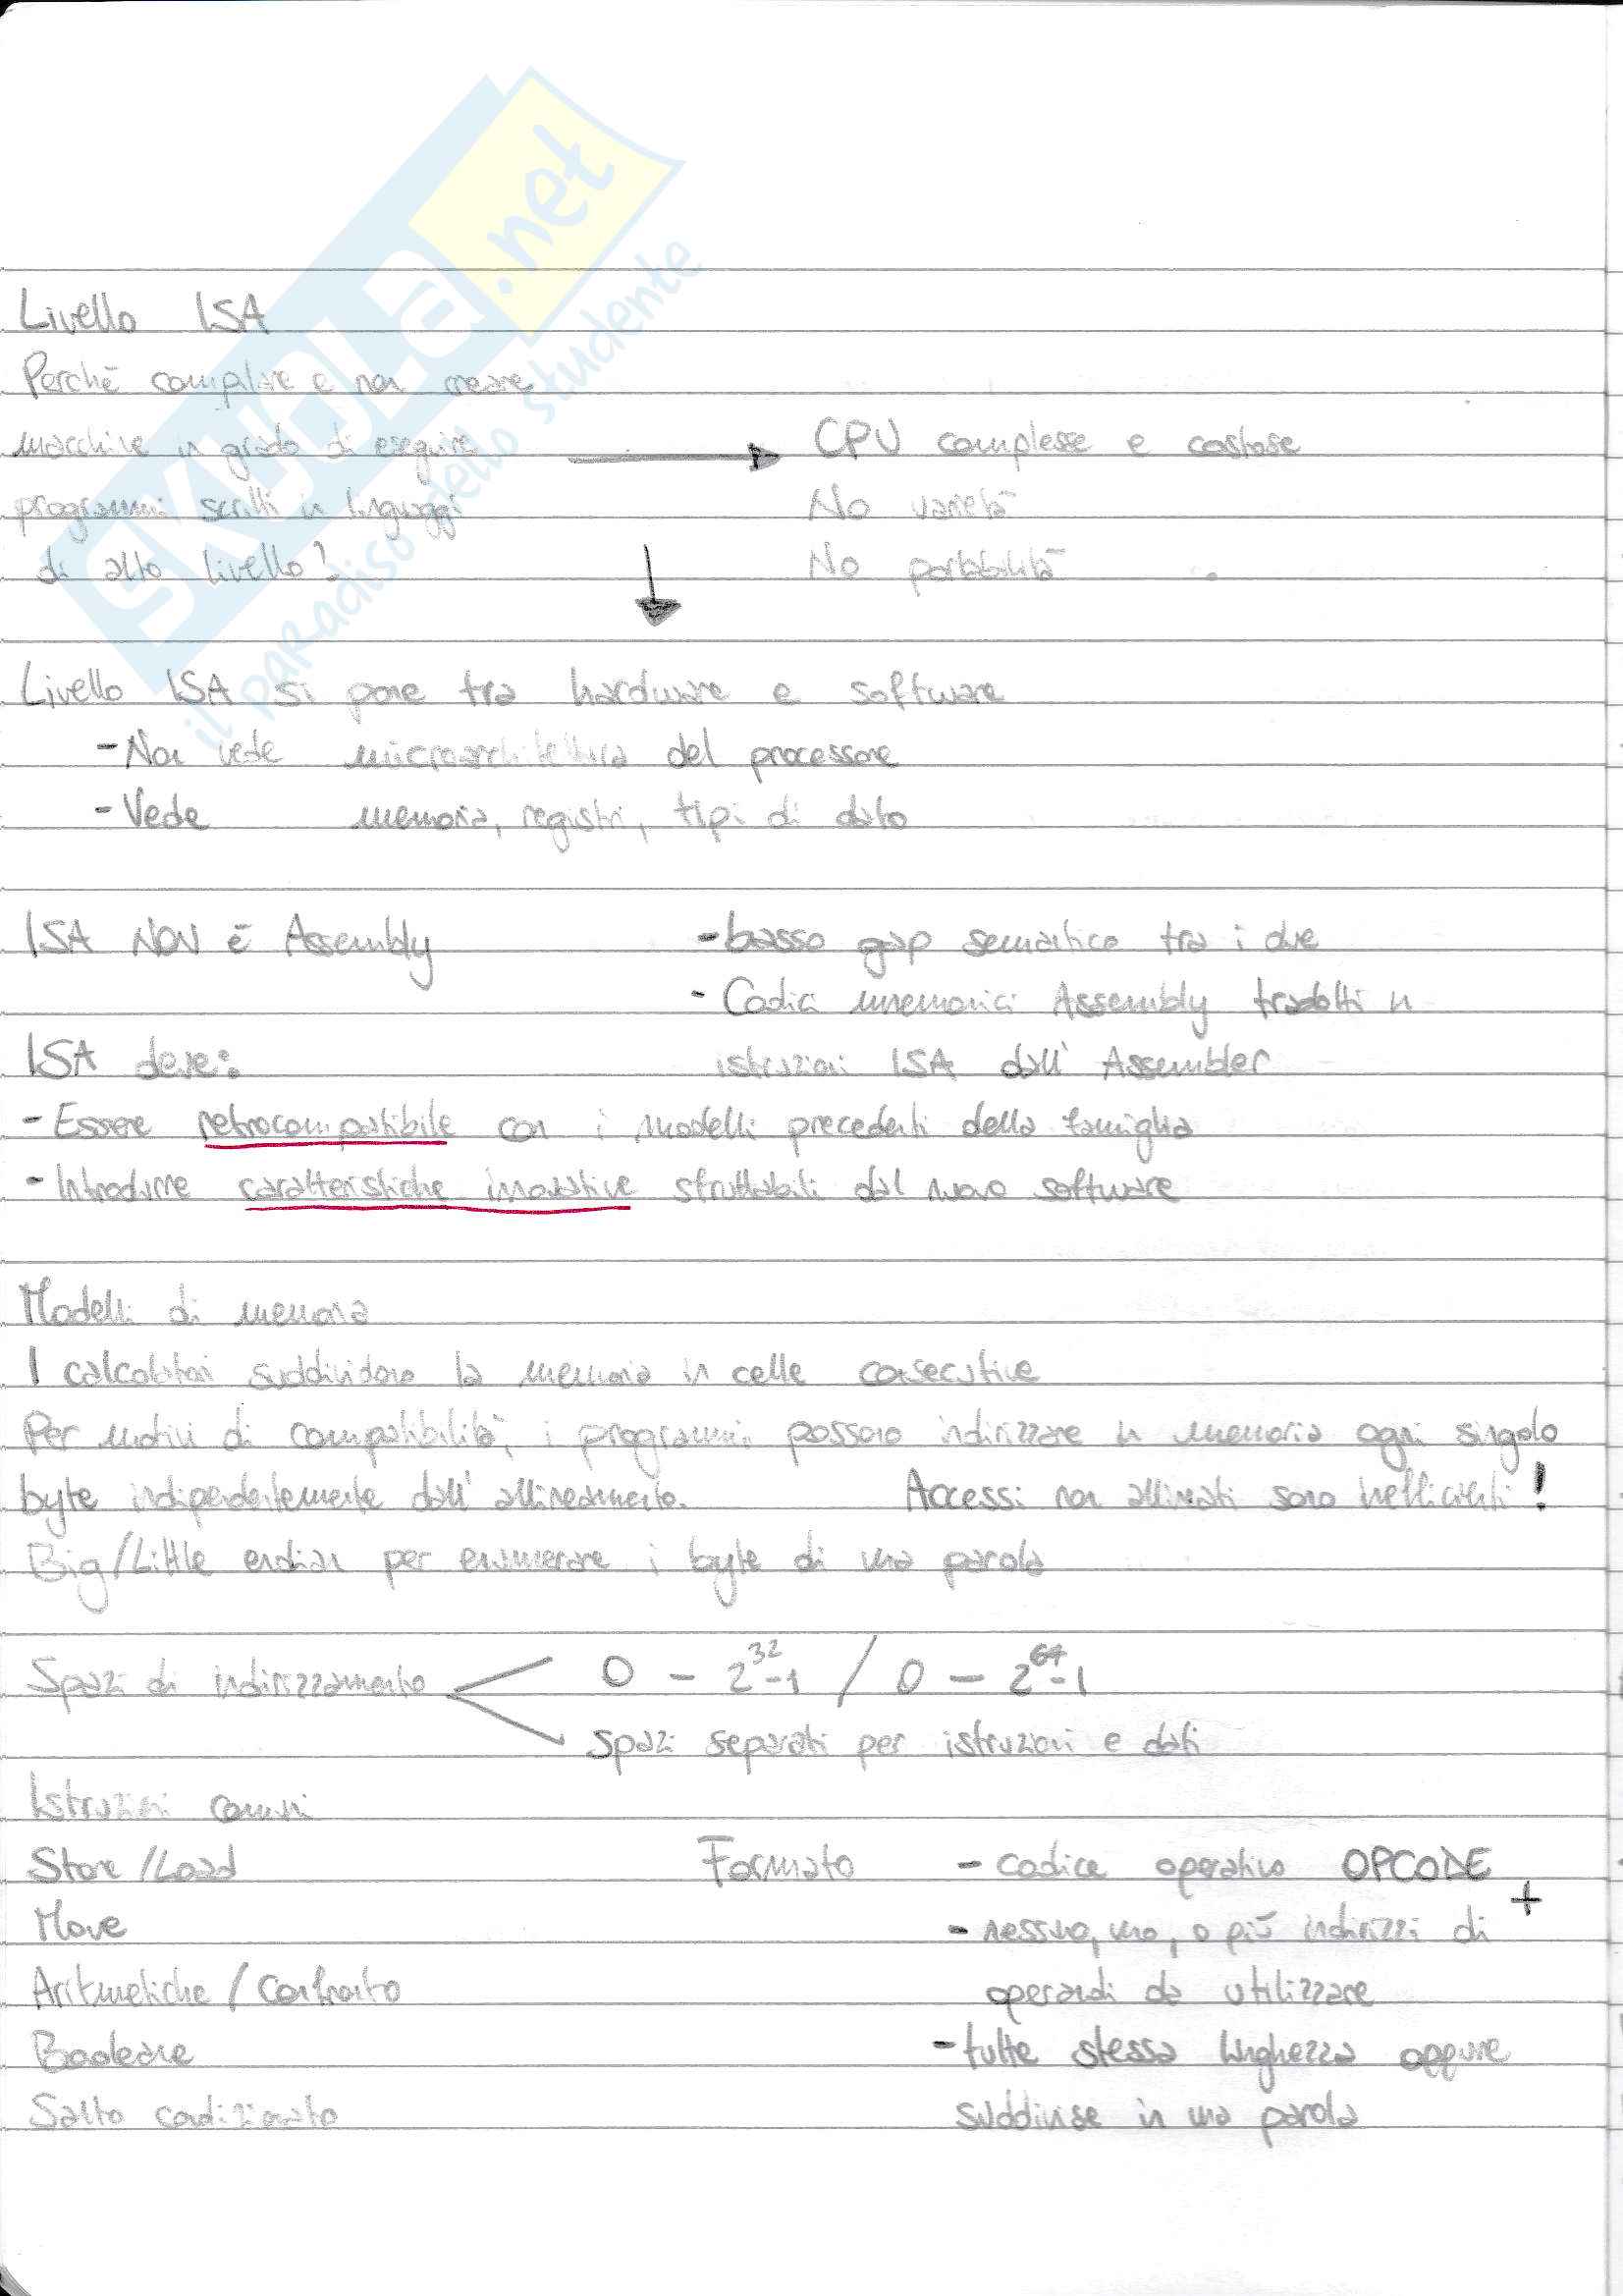 SKUOLA.net
il paradiso dello studente
Livello ISA
Perchè compilare e non creare
macchine in grado di eseguire
programmi scritti in linguaggi
di alto livello?
CPU complesse e costose
No varietà
No portabilità
Livello ISA si pone tra hardware e software
- Non vede microarchitettura del processore
- Vede memoria, registri, tipi di dato
ISA NON è Assembly
- basso gap semantico tra i due
- Codici mnemonici Assembly tradotti in
istruzioni ISA dall'Assembler
ISA deve:
- Essere retrocompatibile con i modelli precedenti della famiglia
- Introdurre caratteristiche innovative sfruttabili dal nuovo software
Modelli di memoria
I calcolatori suddividono la memoria in celle consecutive
Per motivi di compatibilità, i programmi possono indirizzare in memoria ogni singolo
byte indipendentemente dall'allineamento. Accessi non allineati sono inefficienti!
Big/Little endian per enumerare i byte di una parola
Spazi di indirizzamento 0 - 2^32 -1 / 0 - 2^64 -1
spazi separati per istruzioni e dati
Istruzioni comuni
Store/Load
Move
Aritmetiche / Confronto
Booleane
Salto condizionato
Formato - codice operativo OPCODE
+
- nessuno, uno, o più indirizzi di
operandi da utilizzare
- tutte stessa lunghezza oppure
suddivise in una parola